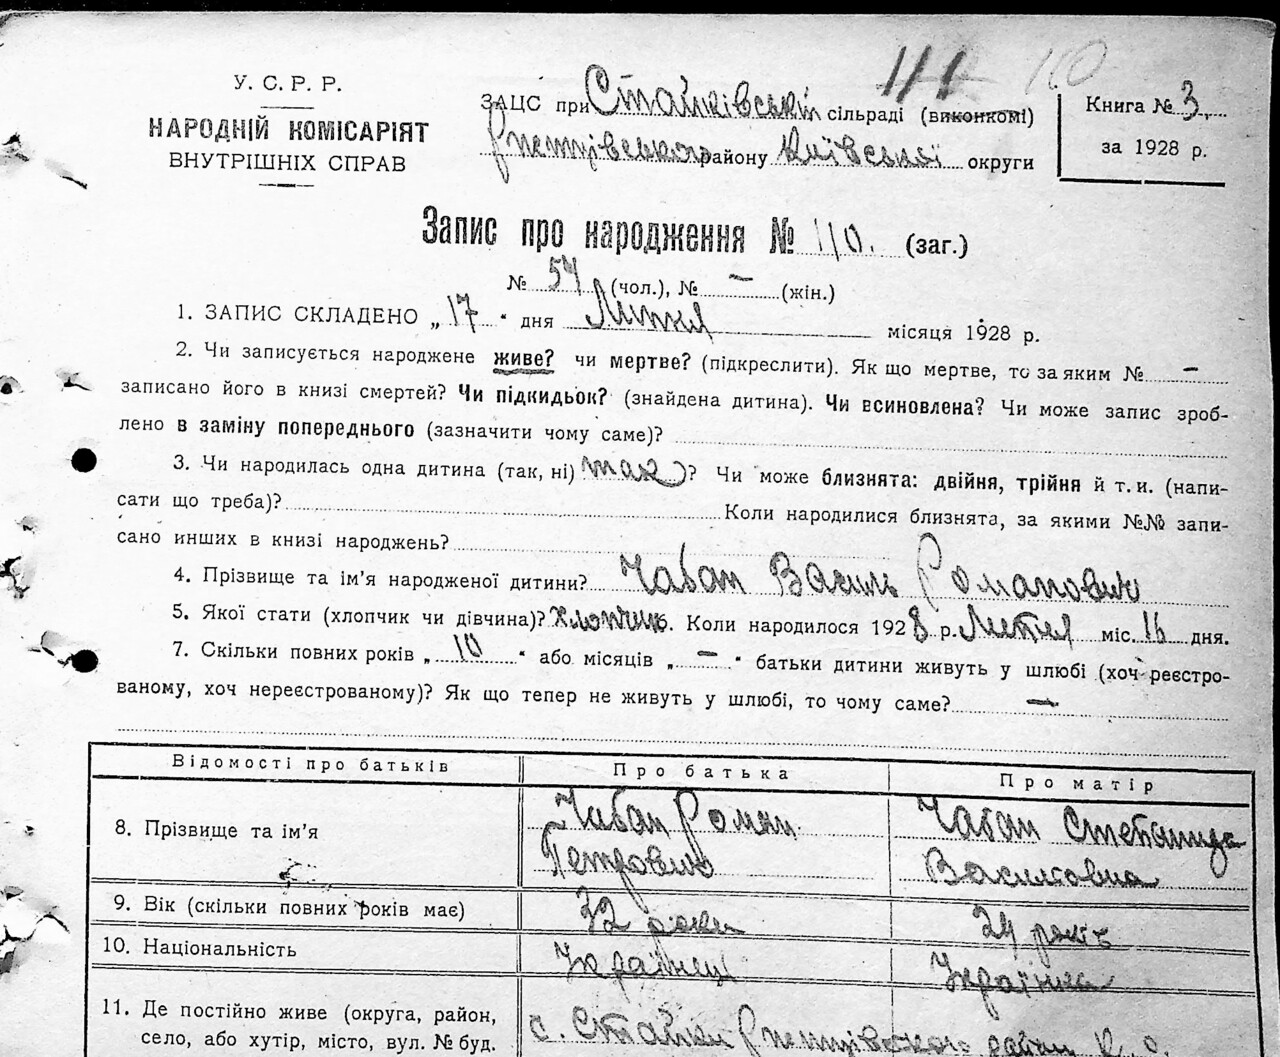 111 110
У. С. Р. Р.
НАРОДНІЙ КОМІСАРІЯТ
ВНУТРІШНІХ СПРАВ
ЗАЦС при Стайківській сільраді (виконкомі)
району Київської округи
Книга № 3
за 1928 р.
Запис про народження № 110. (заг.)
№ 54 (чол.), № – (жін.)
1. ЗАПИС СКЛАДЕНО „ 17 “ дня Липня місяця 1928 р.
2. Чи записується народжене живе? чи мертве? (підкреслити). Як що мертве, то за яким № –
записано його в книзі смертей? Чи підкидьок? (знайдена дитина). Чи всиновлена? Чи може запис зроб-
лено в заміну попереднього (зазначити чому саме)?
3. Чи народилась одна дитина (так, ні) так)? Чи може близнята: двійня, трійня й т. и. (напи-
сати що треба)? Коли народилися близнята, за якими №№ запи-
сано инших в книзі народжень?
4. Прізвище та ім’я народженої дитини? Чабан Василь Романович
5. Якої стати (хлопчик чи дівчина)? Хлопчик. Коли народилося 1928 р. Липня міс. 16 дня.
7. Скільки повних років „ 10 “ або місяців „ – “ батьки дитини живуть у шлюбі (хоч реєстро-
ваному, хоч нереєстрованому)? Як що тепер не живуть у шлюбі, то чому саме? –
Відомості про батьків Про батька Про матір
8. Прізвище та ім’я Чабан Роман Петрович Чабан Степанида Василівна
9. Вік (скільки повних років має) 32 роки 24 років
10. Національність Українець Українка
11. Де постійно живе (округа, район, с. Стайки району К. о.
село, або хутір, місто, вул. № буд.